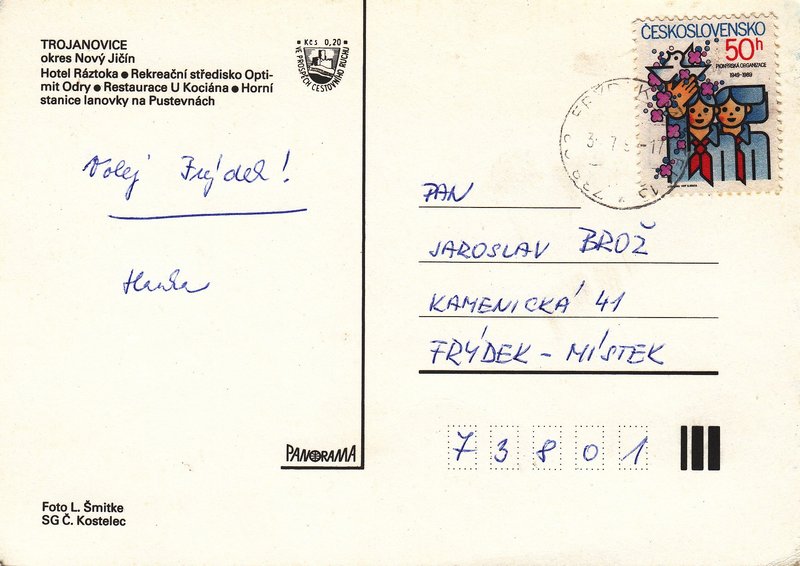 TROJANOVICE
okres Nový Jičín
Hotel Ráztoka ● Rekreační středisko Opti-
mit Odry ● Restaurace U Kociána ● Horní
stanice lanovky na Pustevnách
Kčs 0,20
VE PROSPĚCH CESTOVNÍHO RUCHU
ČESKOSLOVENSKO
50h
PIONÝRSKÁ ORGANIZACE
1949-1989
Volej Frýdek!
Hanka
PAN
JAROSLAV BROŽ
KAMENICKÁ 41
FRÝDEK - MÍSTEK
73801
PANORAMA
Foto L. Šmitke
SG Č. Kostelec